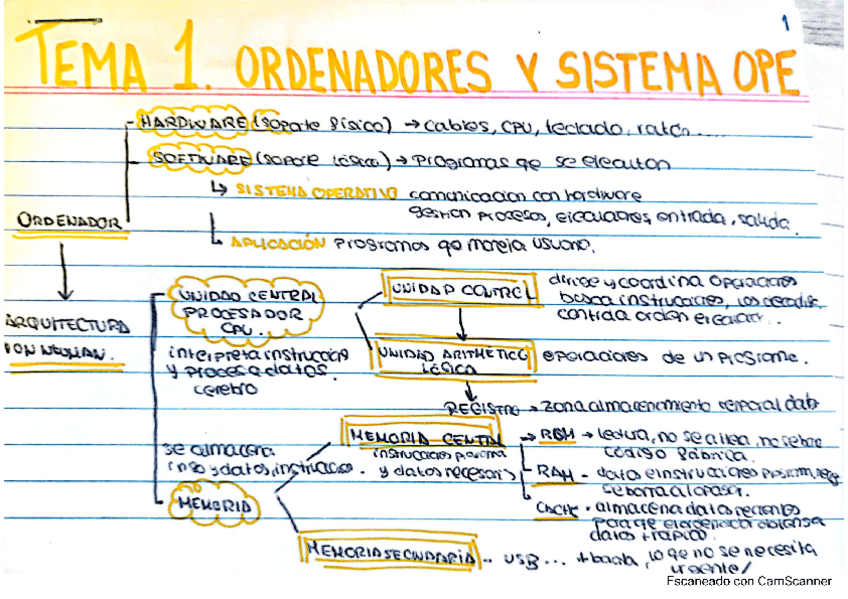 1
TEMA 1. ORDENADORES Y SISTEMA OPE
HARDWARE (soporte físico) → cables, CPU, teclado, ratón.....
SOFTWARE (soporte lógico) → Programas qe se ejecutan
↳ SISTEMA OPERATIVO comunicacion con hardware
gestion procesos, ejecuciones, entrada, salida.
ORDENADOR
APLICACIÓN programas qe maneja usuario.
ARQUITECTURA
VON NEUMAN.
UNIDAD CENTRAL
PROCESADOR
CPU.
interpreta instrucción
y procesa datos.
cerebro
UNIDAD CONTROL
dirige y coordina operaciones
busca instrucciones, los
controla orden ejecución..
UNIDAD ARITMETICO
LÓGICA
operaciones de un programa.
REGISTRO → zona almacenamiento temporal datos
MEMORIA CENTRAL
instrucciones programa
y datos necesarios
→ ROM → lectura, no se altera, no se borra
código fábrica.
RAM - datos e instrucciones program,
se borra al apagar.
CACHE - almacena datos recientes
para qe el ordenador obtenga
datos + rápido.
se almacena
info y datos, instrucción.
MEMORIA
MEMORIA SECUNDARIA - USB... + barata, lo qe no se necesita
urgente/
Escaneado con CamScanner